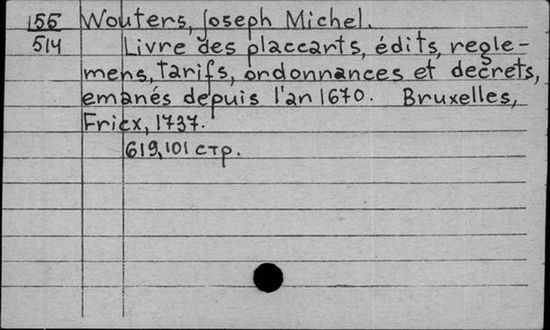 155 Wouters, Joseph Michel.
514 Livre des placcarts, édits, regle-
mens, tarifs, ordonnances et decrets,
emanés depuis l'an 1670. Bruxelles,
Fricx, 1737.
619, 101 стр.